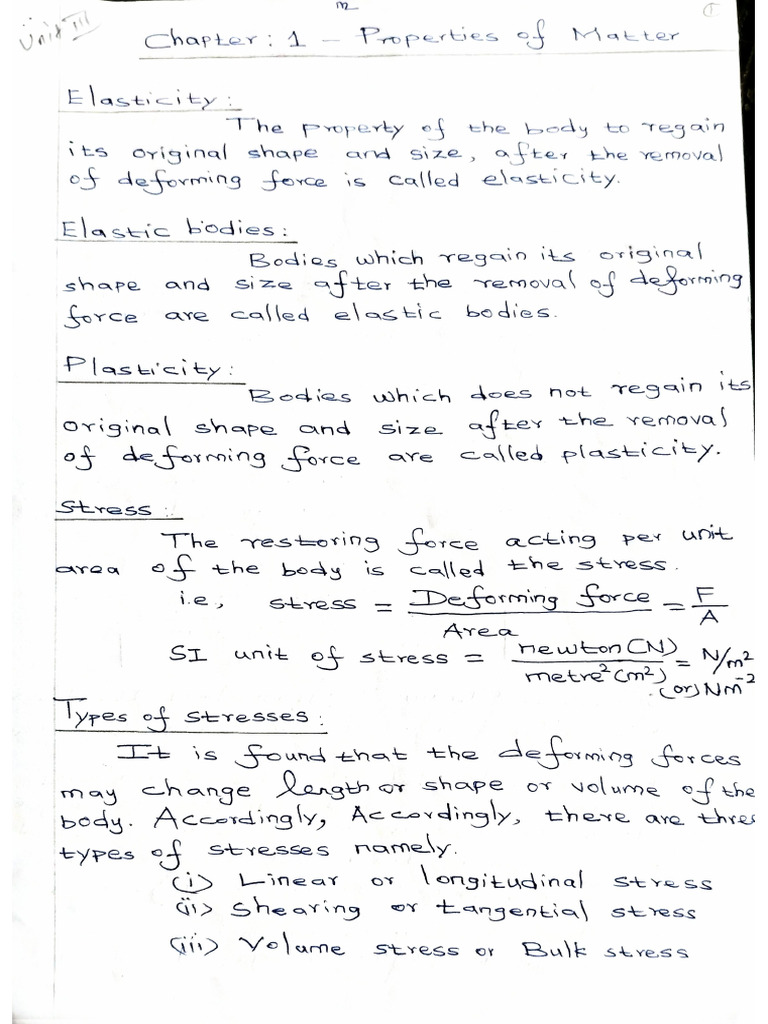 Unit III
①
Chapter: 1 – Properties of Matter
Elasticity:
The property of the body to regain
its original shape and size, after the removal
of deforming force is called elasticity.
Elastic bodies:
Bodies which regain its original
shape and size after the removal of deforming
force are called elastic bodies.
Plasticity:
Bodies which does not regain its
original shape and size after the removal
of deforming force are called plasticity.
Stress:
The restoring force acting per unit
area of the body is called the stress.
i.e, stress = Deforming force / Area = F/A
SI unit of stress = newton(N) / metre²(m²) = N/m²
(or) Nm⁻²
Types of stresses:
It is found that the deforming forces
may change length or shape or volume of the
body. Accordingly, Accordingly, there are three
types of stresses namely.
(i) Linear or longitudinal stress
(ii) Shearing or tangential stress
(iii) Volume stress or Bulk stress